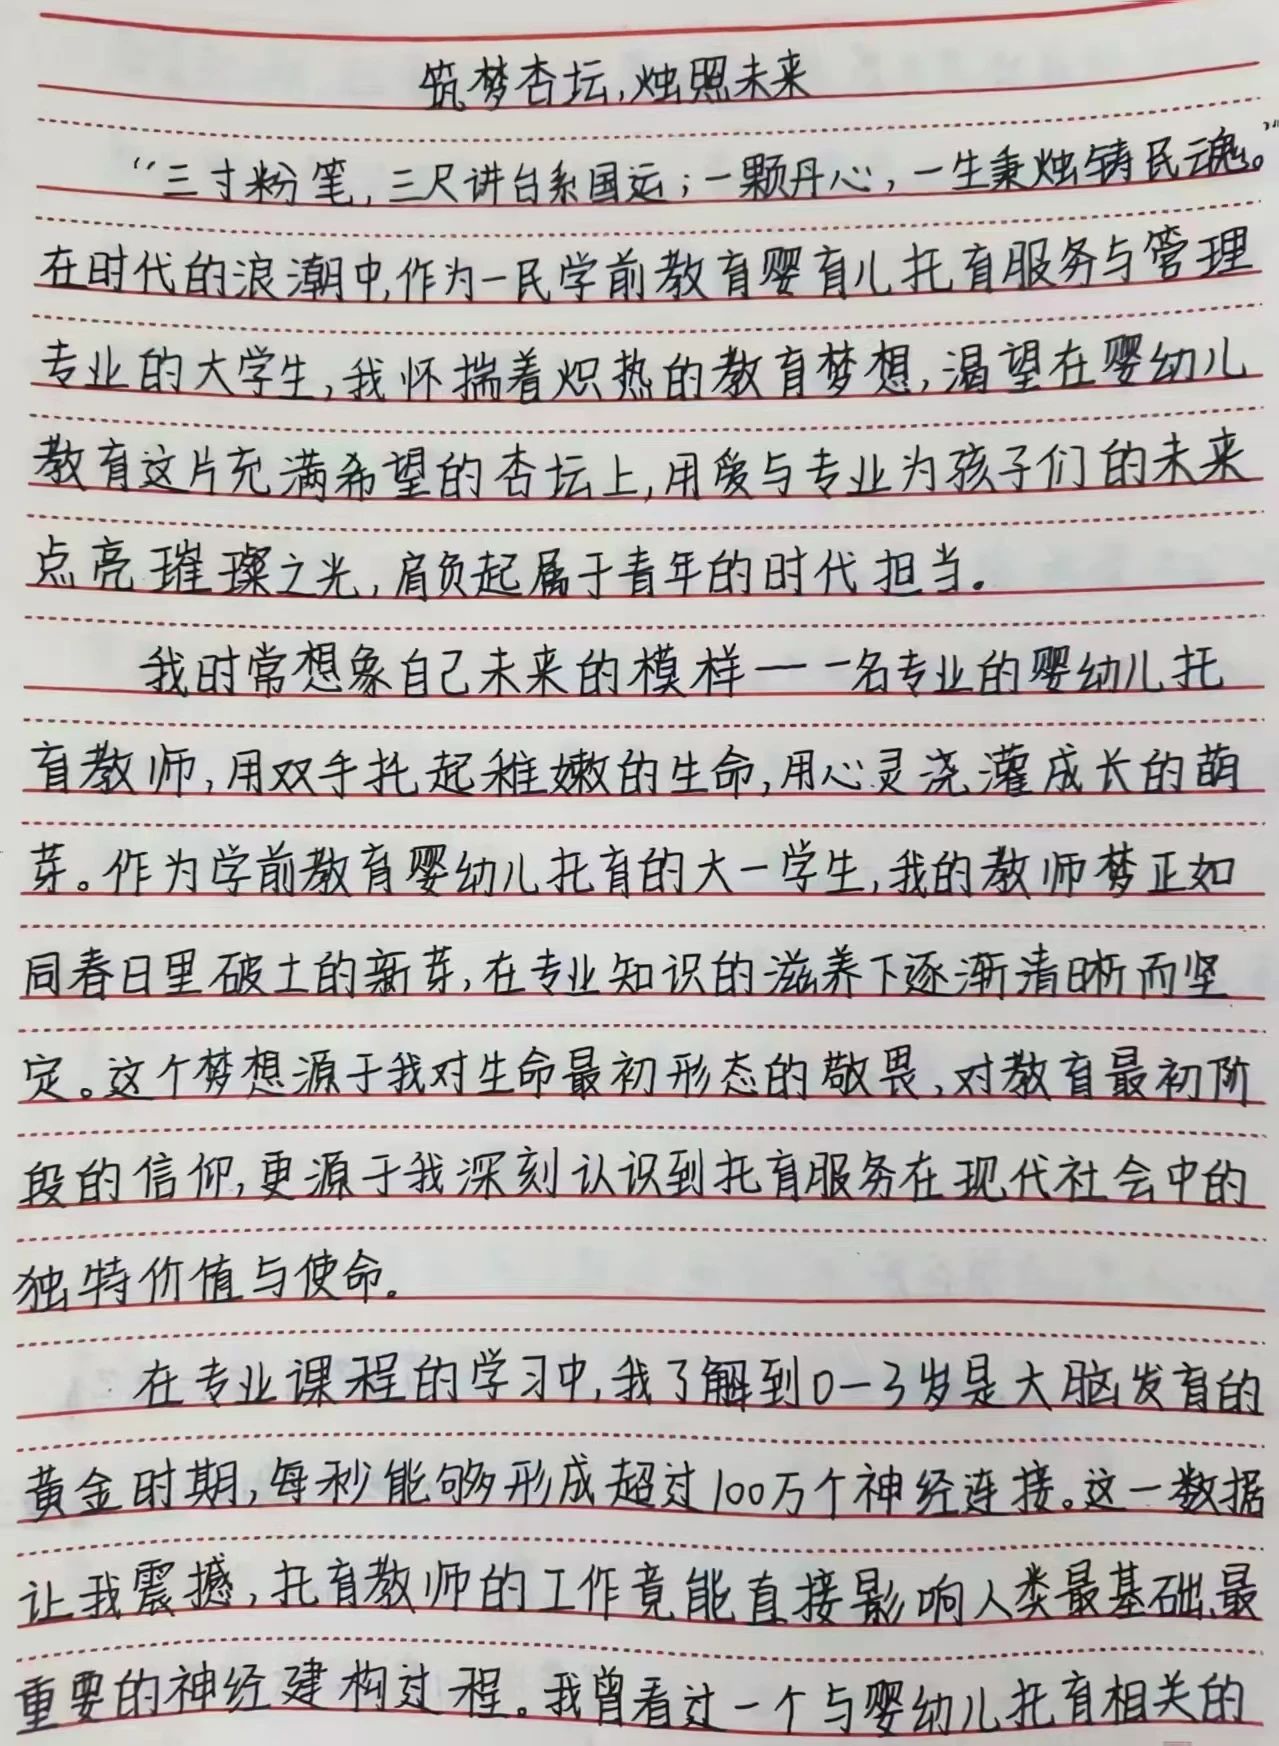 筑梦杏坛,烛照未来
“三寸粉笔,三尺讲台系国运;一颗丹心,一生秉烛铸民魂。”
在时代的浪潮中,作为一民学前教育婴育儿托育服务与管理
专业的大学生,我怀揣着炽热的教育梦想,渴望在婴幼儿
教育这片充满希望的杏坛上,用爱与专业为孩子们的未来
点亮璀璨之光,肩负起属于青年的时代担当。
我时常想象自己未来的模样——一名专业的婴幼儿托
育教师,用双手托起稚嫩的生命,用心灵浇灌成长的萌
芽。作为学前教育婴幼儿托育的大一学生,我的教师梦正如
同春日里破土的新芽,在专业知识的滋养下逐渐清晰而坚
定。这个梦想源于我对生命最初形态的敬畏,对教育最初阶
段的信仰,更源于我深刻认识到托育服务在现代社会中的
独特价值与使命。
在专业课程的学习中,我了解到0-3岁是大脑发育的
黄金时期,每秒能够形成超过100万个神经连接。这一数据
让我震撼,托育教师的工作竟能直接影响人类最基础、最
重要的神经建构过程。我曾看过一个与婴幼儿托育相关的